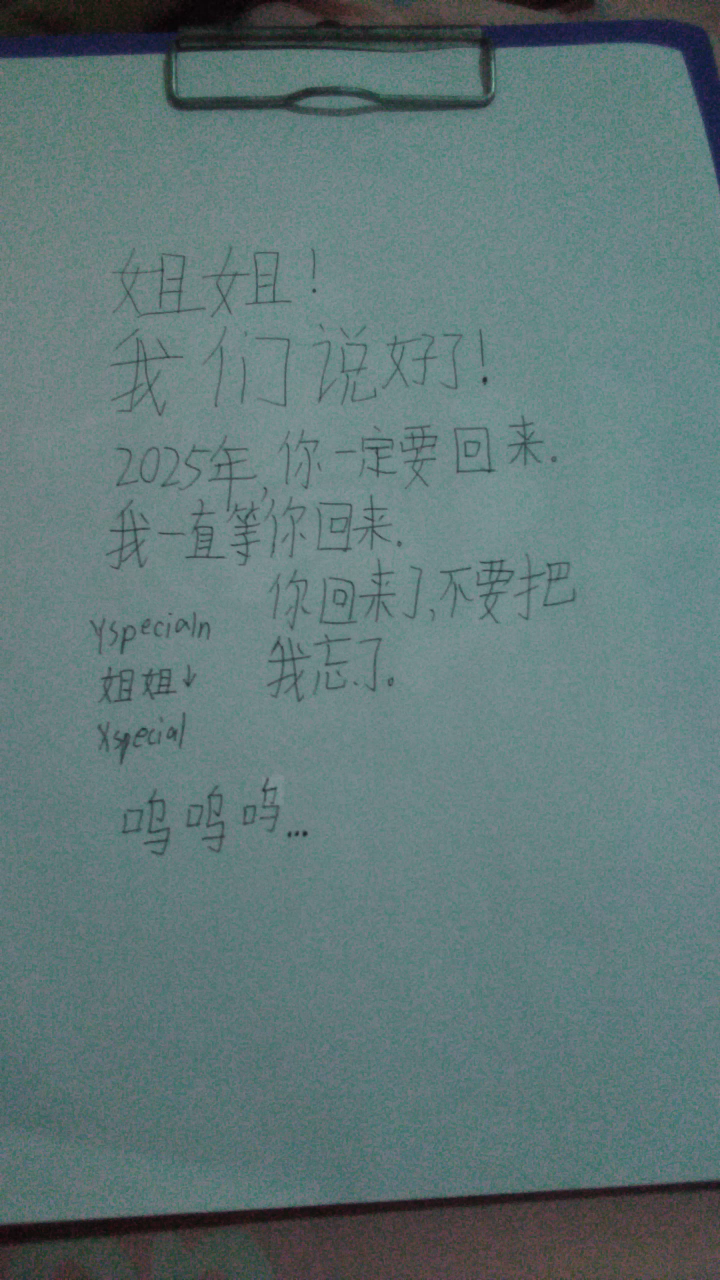 姐姐！
我们说好了！
2025年,你一定要回来.
我一直等你回来.
你回来了,不要把
我忘了。
Yspecialn
姐姐↓
Xspecial
呜呜呜...